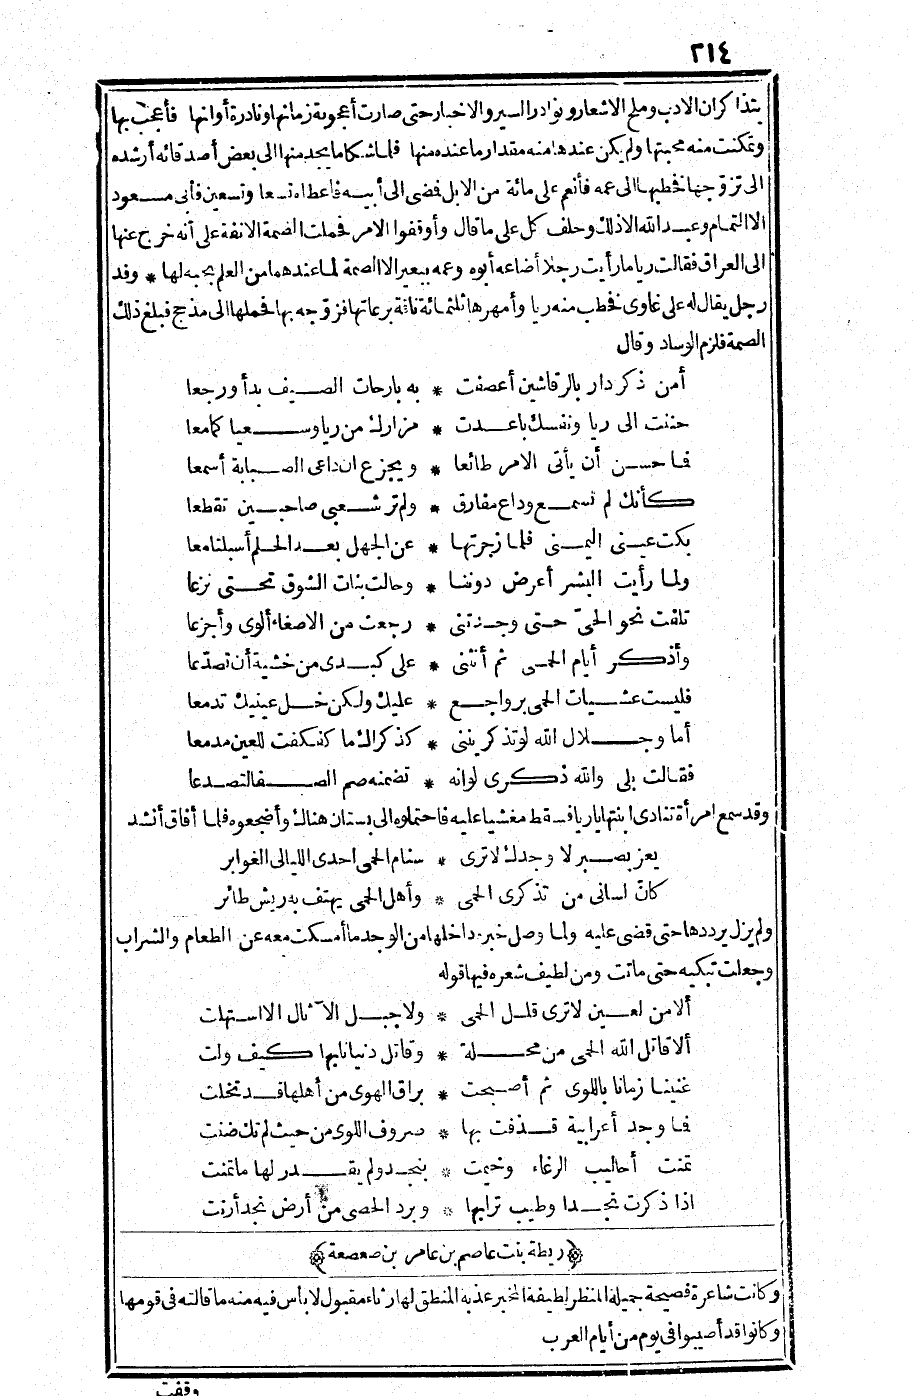 ٢١٤
يتذاكران الادب وملح الاشعار ونوادر السير والاخبار حتى صارت أعجوبة زمانها ونادرة أوانها فأعجب بها
وتمكنت منه محبتها ولم يكن عندها منه مقدار ما عنده منها فلما شكا ما يجد منها الى بعض أصدقائه أرشده
الى تزوّجها فخطبها الى عمه فأنعم على مائة من الابل فضى الى أبيه فأعطاه تسعا وتسعين فأبى مسعود
الا التمام وعبد الله الا ذلك وحلف كل على ما قال وأوقفوا الامر فحملت الصمة الانفة على أنه خرج عنها
الى العراق فقالت ريا ما رأيت رجلا أضاعه أبوه وعمه ببعير الا الصمة لما عندهما من العلم بحبه لها * وفد
رجل يقال له على غاوى فخطب منه ريا وأمهرها ثلثمائة ناقة برعاتها فزوّجه بها فحملها الى مذحج فبلغ ذلك
الصمة فلزم الوساد وقال
أمن ذكر دار بالرقاشين أعصفت * به بارحات الصيف بدأ ورجعا
حننت الى ريا ونفسك باعدت * مزارك من ريا وسعيا كما معا
فا حسن أن يأتى الامر طائعا * ويجزع ان داعى الصبابة أسمعا
كأنك لم تسمع وداع مفارق * ولم تر شعبى صاحبين تقطعا
بكت عينى اليمنى فلما زجرتها * عن الجهل بعد الحلم أسبلتا معا
ولما رأيت البشر أعرض دوننا * وحالت بنات الشوق تحتى نزعا
تلفت نحو الحىّ حتى وجدتنى * رجعت من الاصغاء ألوى وأجزعا
وأذكر أيام الحمى ثم أنثنى * على كبدى من خشية أن تصدّعا
فليست عشيات الحمى برواجع * عليك ولكن خل عينيك تدمعا
أما وجلال الله لو تذكريننى * كذكراك ما كفكفت للعين مدمعا
فقالت بلى والله ذكرى لو انه * تضمنه صم الصفا لتصدعا
وقد سمع امرأة تنادى ابنتها يا ريا فسقط مغشيا عليه فاحتملوه الى بستان هناك وأضجعوه فلما أفاق أنشد
يعز بصبر لا وجدك لا ترى * سنام الحمى احدى الليالى الغوابر
كانّ لسانى من تذكرى الحمى * وأهل الحمى يهتف به ريش طائر
ولم يزل يرددها حتى قضى عليه ولما وصل خبره داخلها من الوجد ما أمسكت معه عن الطعام والشراب
وجعلت تبكيه حتى ماتت ومن لطيف شعره فيها قوله
ألا من لعين لا ترى قلل الحمى * ولا جبل الآثال الا استهلت
ألا قاتل الله الحمى من محلة * وقاتل دنيانا بها كيف ولت
غنينا زمانا باللوى ثم أصبحت * براق الهوى من أهلها قد تخلت
فا وجد أعرابية قذفت بها * صروف اللوى من حيث لم تك ضنت
تمنت أحاليب الرغاء وخيمت * بنجد ولم يقدر لها ما تمنت
اذا ذكرت نجدا وطيب ترابها * وبرد الحصى من أرض نجد أرنت
﴿ ريطة بنت عاصم بن عامر بن صعصعة ﴾
وكانت شاعرة فصيحة جميلة المنظر لطيفة المخبر عذبة المنطق لها رثاء مقبول لا بأس فيه منه ما قالته فى قومها
وكانوا قد أصيبوا فى يوم من أيام العرب
وقفت